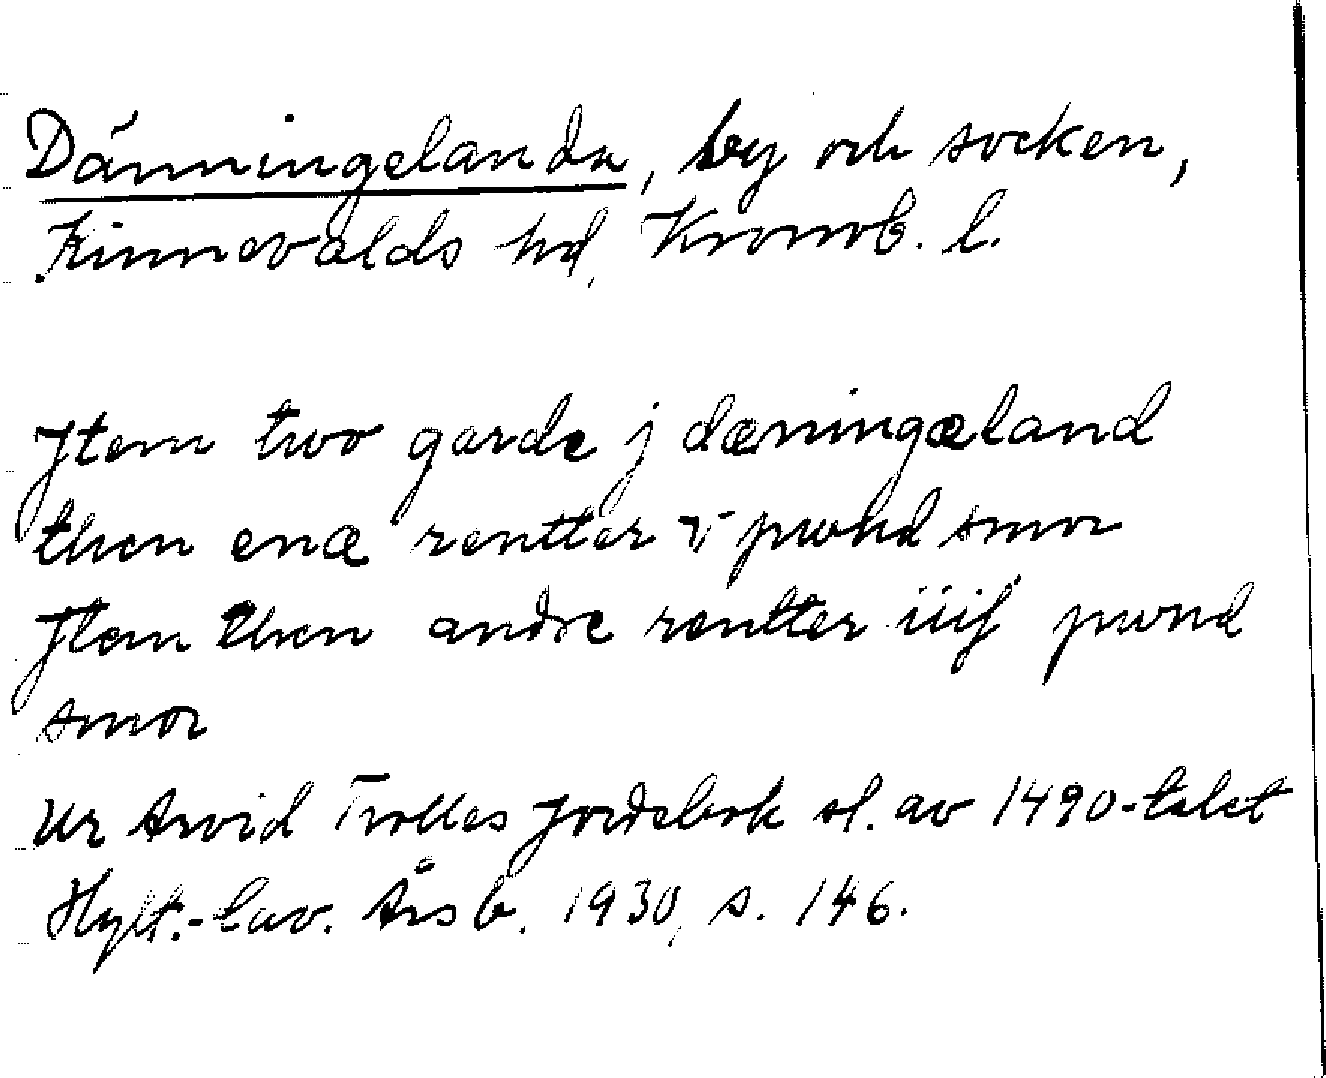 Dänningelanda, by och socken,
Kinnevalds hd, Kronob. l.
Jtem two garde j dæningæland
then enæ rentter v pund smor
Jtem then andre rentter iiij pund
smor
Ur Arvid Trolles Jordebok sl. av 1490-talet
Hylt.-Cav. Årsb. 1930, s. 146.